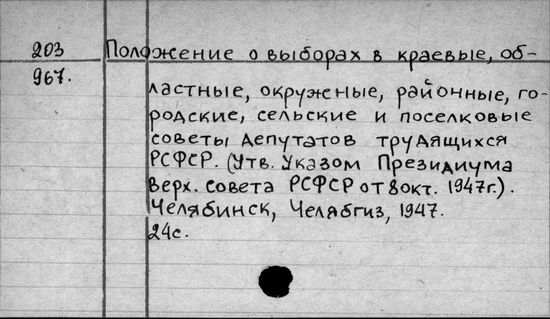 203 Положение о выборах в краевые, об-
967.
ластные, окружные, районные, го-
родские, сельские и поселковые
советы депутатов трудящихся
РСФСР. (Утв. Указом Президиума
Верх. совета РСФСР от 8 окт. 1947г.).
Челябинск, Челябгиз, 1947.
24с.